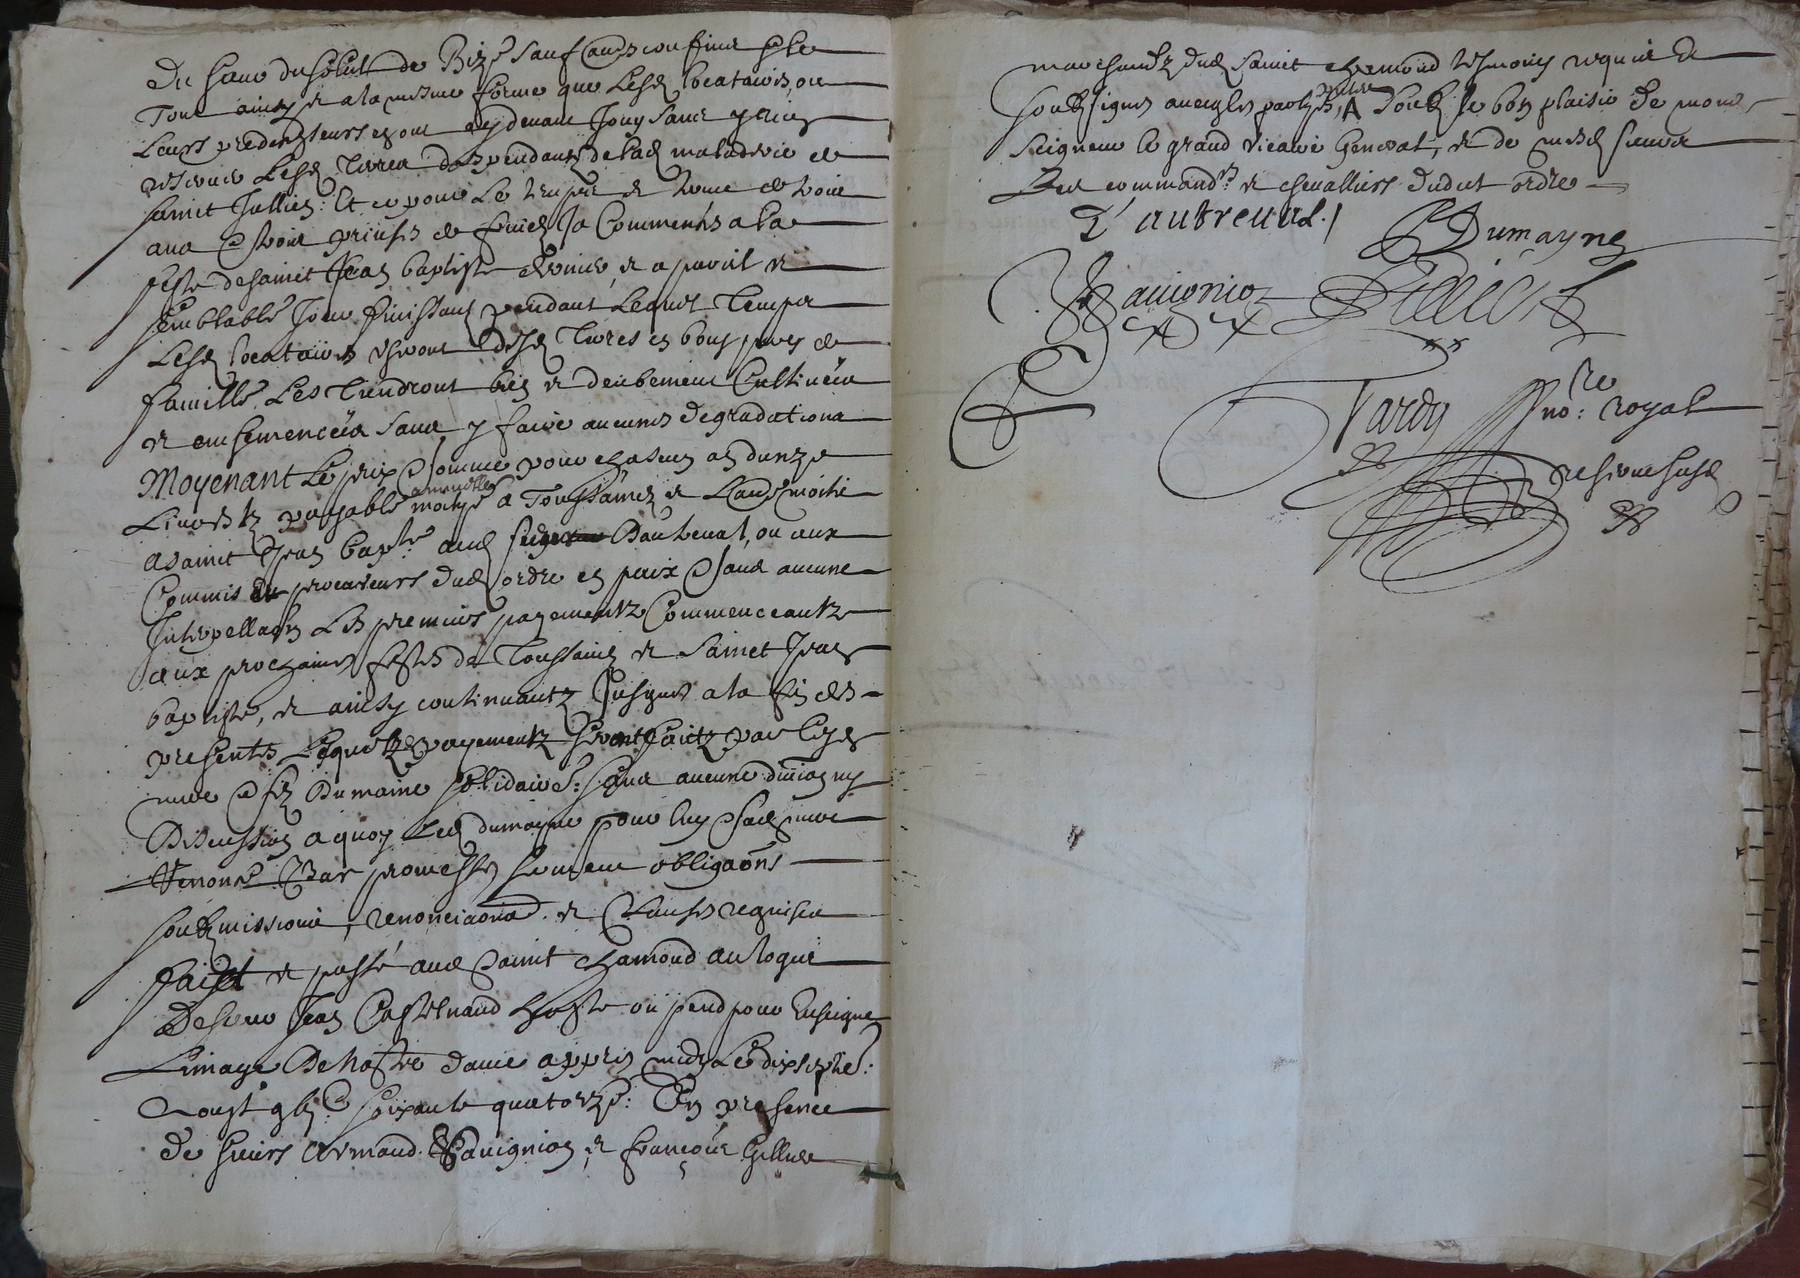 du sieur du Soleil de Bize sauf ses autres confins et le
Tout ainsy et a la mesme forme que lesd locataires, ou
Leurs predecesseurs en ont cy devant Jouy sans y rien
reserver Lesd Terres deppendants de lad maladerie de
saint Jullien. Et ce pour Le temps et terme de
ans et prinses ja Commencés a la
feste de sainct Jean baptiste dernier, et a pareil et
semblable Jour finissant, pendant Lequel Temps
Lesd locataires desd Terres en bons peres de
famille, Les Tiendront bien et deubement Cultivées
et ensemencées sans y faire aucunes degradations
Moyenant Le prix et somme pour chascun an d'unze
Livres tz payable annuellement moityé a Toussainctz et L'autre moitié
a sainct Jean bapte aud sieur Dautreval, ou aux
Commis ou procureurs dud ordre en paix et sans aucune
Interpellaon Les premiers payementz Commenceantz
aux prochaines festes de Toussainctz et Sainct Jean
baptiste, et ainsy continuantz Jusques a la fin des
presentes Lesquelz payementz seront faictz par lesd
mere et filz Dumaine solidairet: sans aucune division ny
Discussion a quoy Led dumayne pour luy et sad mere
Renonce Par promesses serment obligaons
soubzmissions, renonciaons et Clauses requises
faict et passé aud Sainct chamond au logis
De sieur Jean Castelnaud hoste ou pend pour Enseigne
Limage De Nostre dame appres midy Le dixseptie:
Aoust gbic soixante quatorze: En presence
de sieurs Armand Ravignion, et françois Gillier
marchandz dud Sainct chamond tesmoings requis et
soubzsignes avec les partyes, soubz le bon plaisir de mon
Seigneur le grand vicaire General, et de mesd sieurs
Les command.rs et chevalliers dudit ordre
D'autreval.
Dumayne
Ravignion
Gillier
Tardy no:re royal
reservesusd